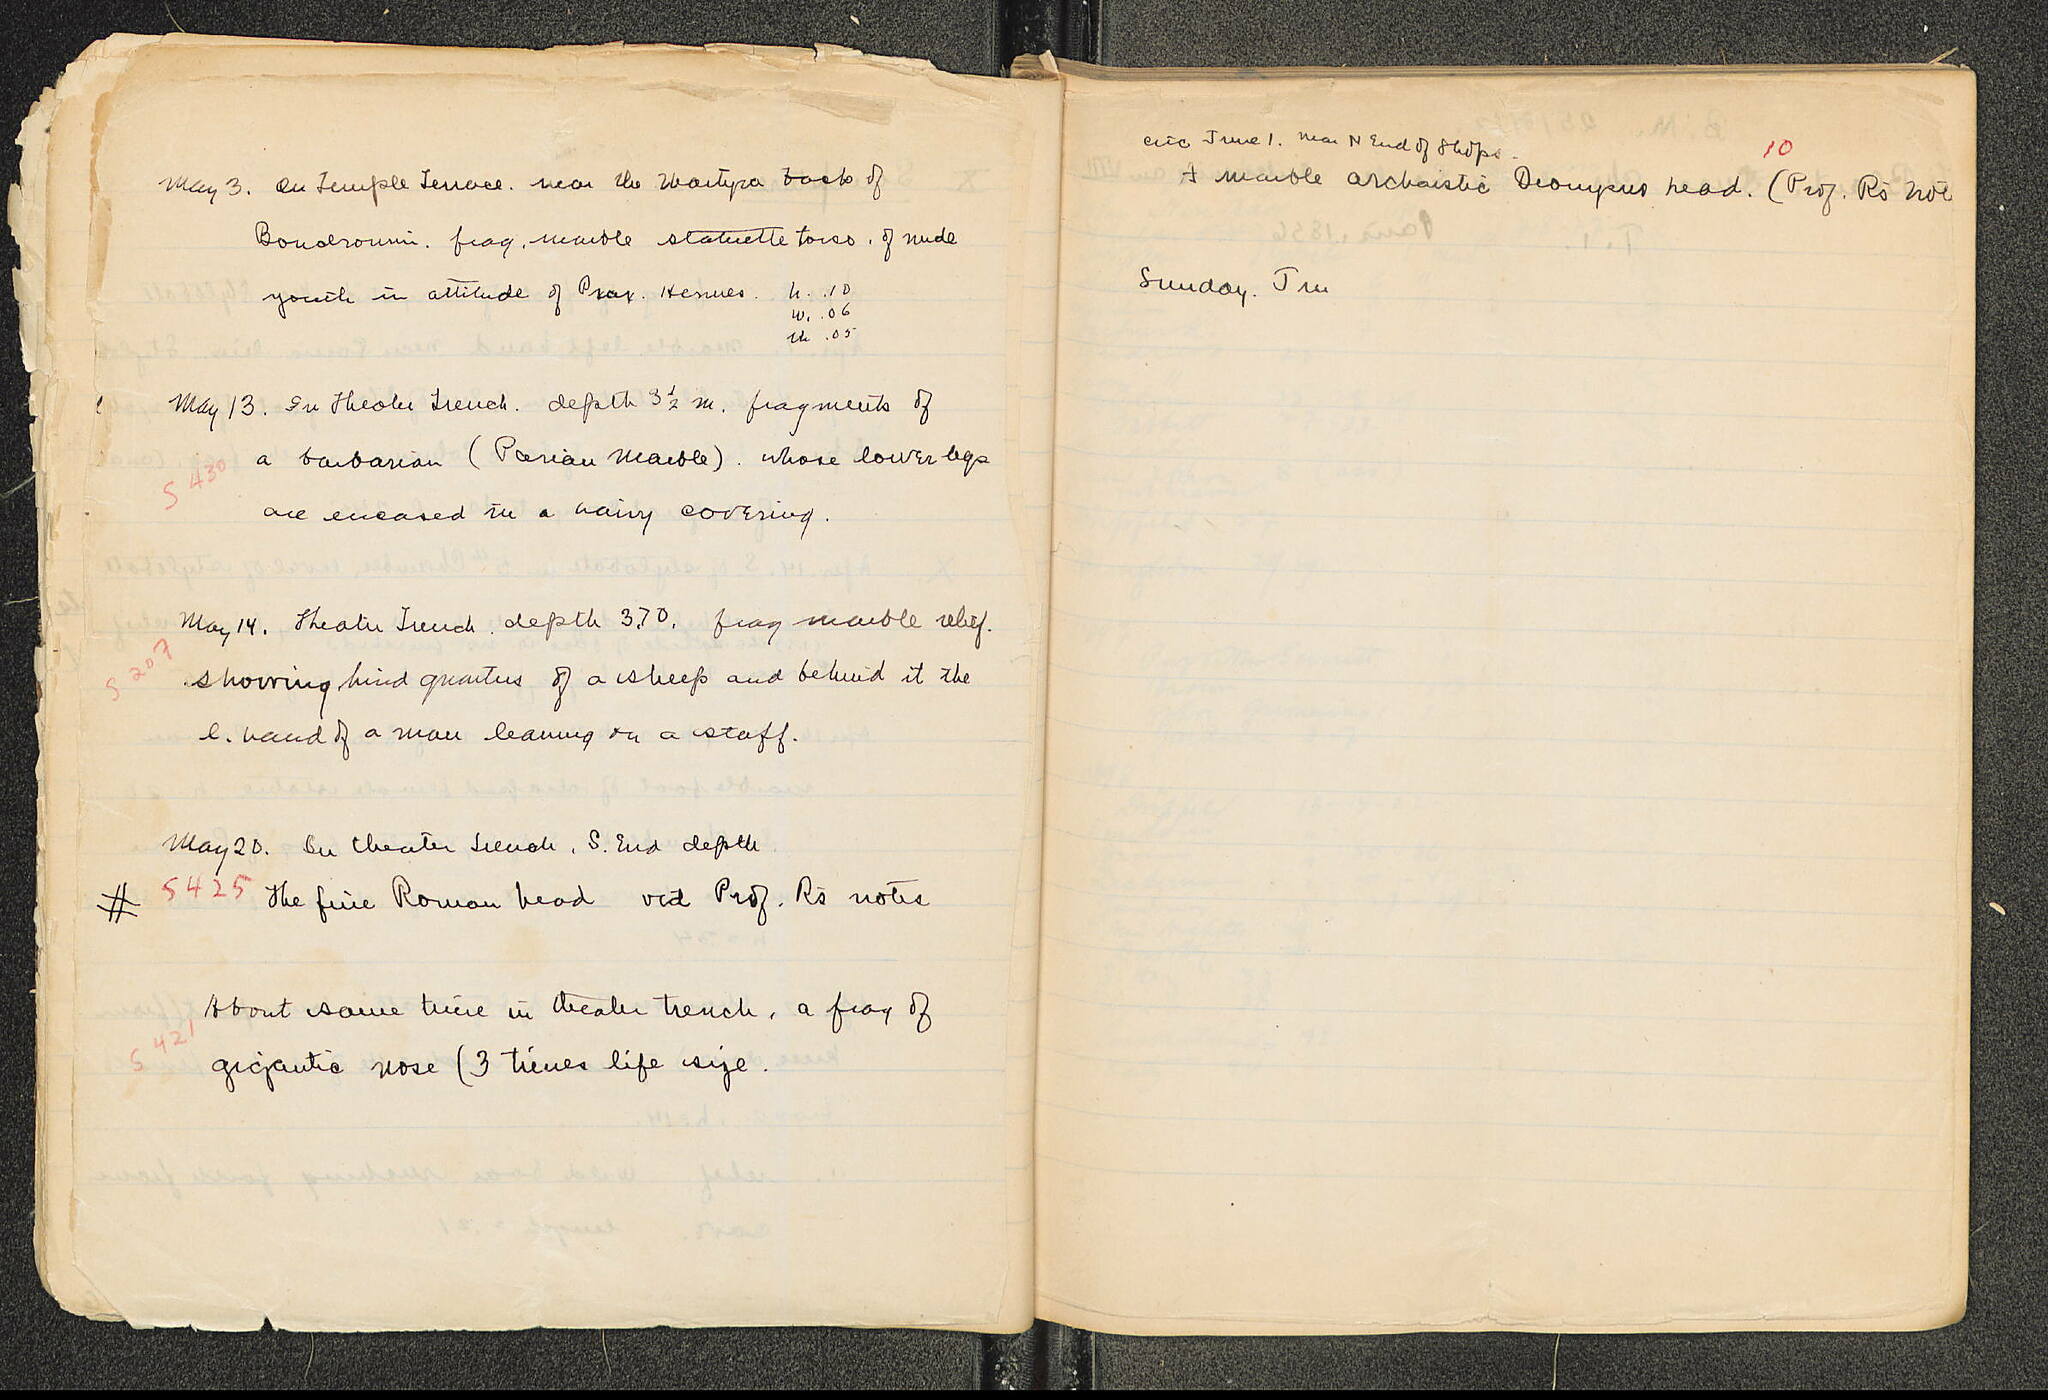 May 3. On Temple Terrace. near the Martyra back of
Boudroumi. frag. marble statuette torso. of nude
youth in attitude of Prax. Hermes. h. .10
w. .06
th .05
May 13. In Theater Trench. depth 3 1/2 m. fragments of
S 430
a barbarian (Parian Marble). whose lower legs
are encased in a hairy covering.
May 14. Theater Trench. depth 3.70. frag marble relief.
S 207
showing hind quarters of a sheep and behind it the
l. hand of a man leaning on a staff.
May 20. In theater trench, S. End depth
# S 425 The fine Roman head vid Prof. R's notes
About same time in theater trench, a frag of
S 421
gigantic nose (3 times life size.
circ June 1. near N End of Shops.
10
A marble archaistic Dionysus head. (Prof. R's not
Sunday. Jun